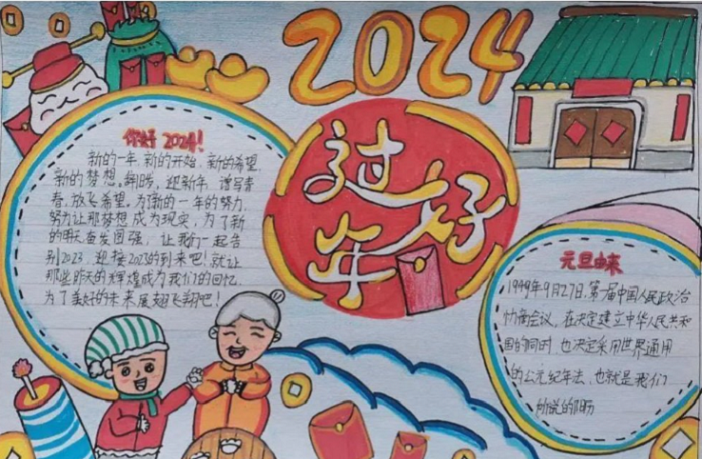 2024
过好年
你好2024!
新的一年,新的开始,新的希望,
新的梦想。翱翔,迎新年,谱写青
春,放飞希望。为了新的一年的努力,
努力让那梦想成为现实,为了新
的明天奋发图强,让我们一起告
别2023,迎接2023的到来吧!就让
那些昨天的辉煌成为我们的回忆,
为了美好的未来展翅飞翔吧!
元旦由来
1949年9月27日,第一届中国人民政治
协商会议,在决定建立中华人民共和
国的同时,也决定采用世界通用
的公元纪年法,也就是我们
所说的阳历